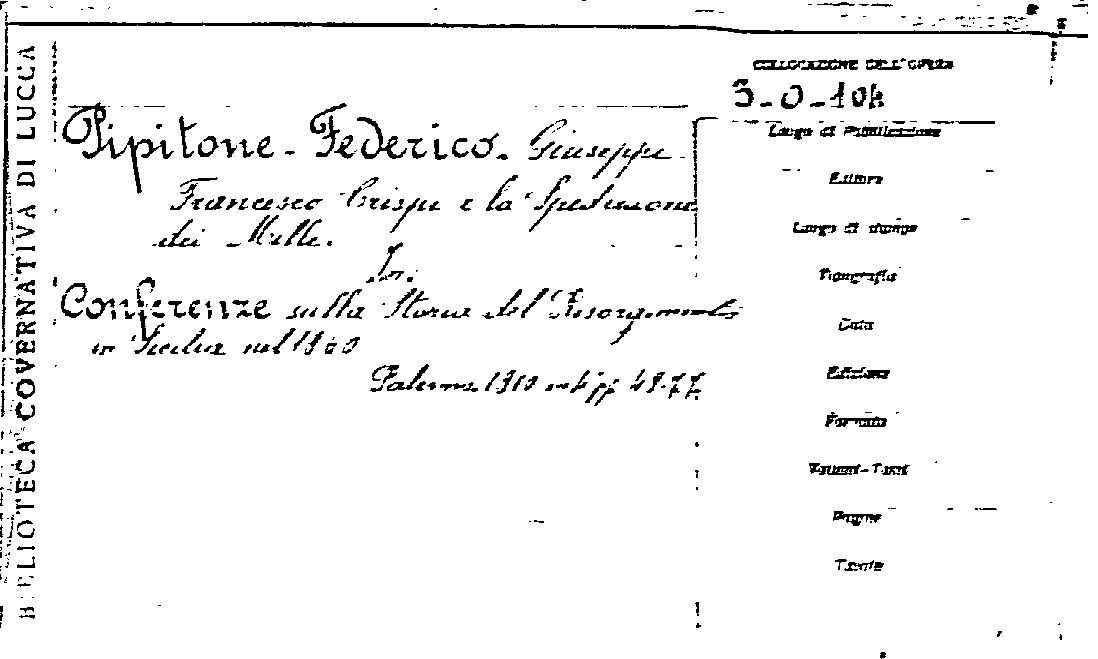 BIBLIOTECA GOVERNATIVA DI LUCCA
COLLOCAZIONE DELL'OPERA
3-0-104
Pipitone-Federico. Giuseppe
Francesco Crispi e la Spedizione
dei Mille.
In:
Conferenze sulla Storia del Risorgimento
in Sicilia nel 1860
Palermo 1910 in 4 pp 49-77
Luogo di Pubblicazione
Editore
Luogo di stampa
Tipografia
Data
Edizione
Formato
Volumi-Tomi
Pagine
Tavole